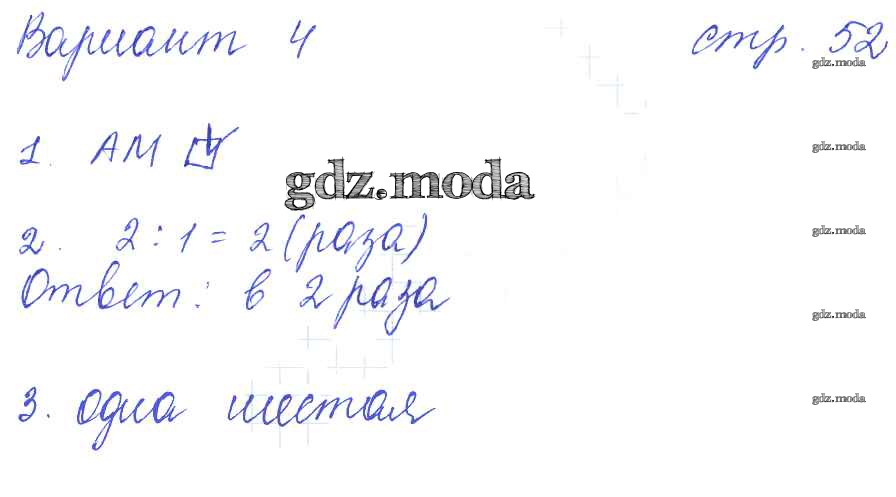 Вариант 4 стр. 52
gdz.moda
1. АМ
gdz.moda
gdz.moda
2. 2 : 1 = 2 (раза)
gdz.moda
Ответ: в 2 раза
gdz.moda
3. одна шестая
gdz.moda